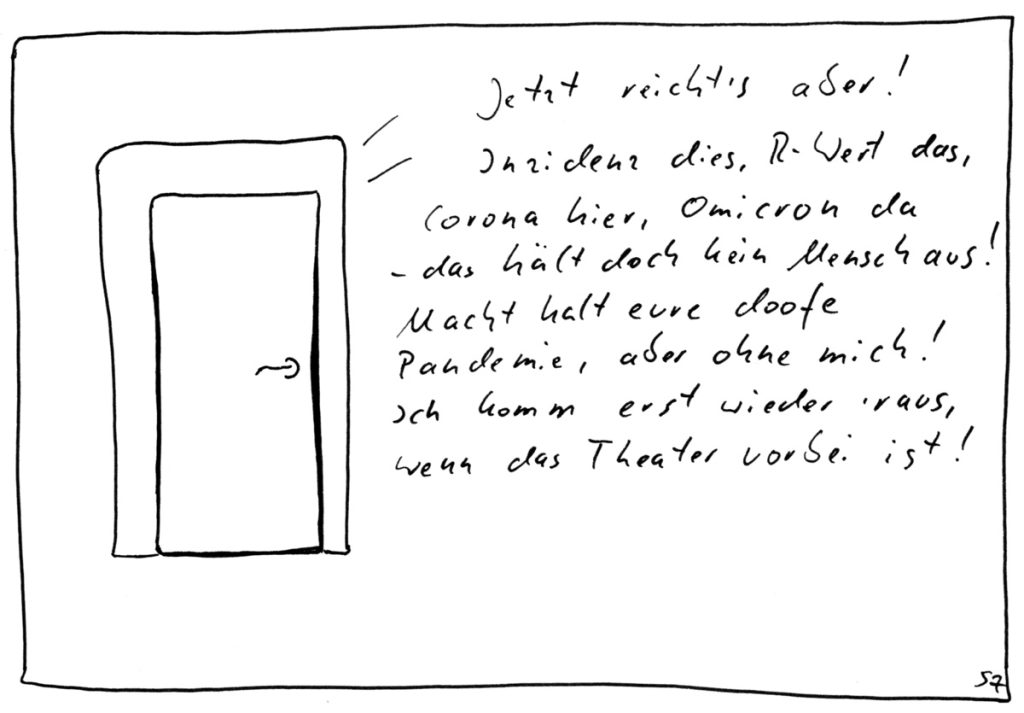 Jetzt reicht's aber!
Inzidenz dies, R-Wert das,
Corona hier, Omicron da
- das hält doch kein Mensch aus!
Macht halt eure doofe
Pandemie, aber ohne mich!
Ich komm erst wieder 'raus,
wenn das Theater vorbei ist!